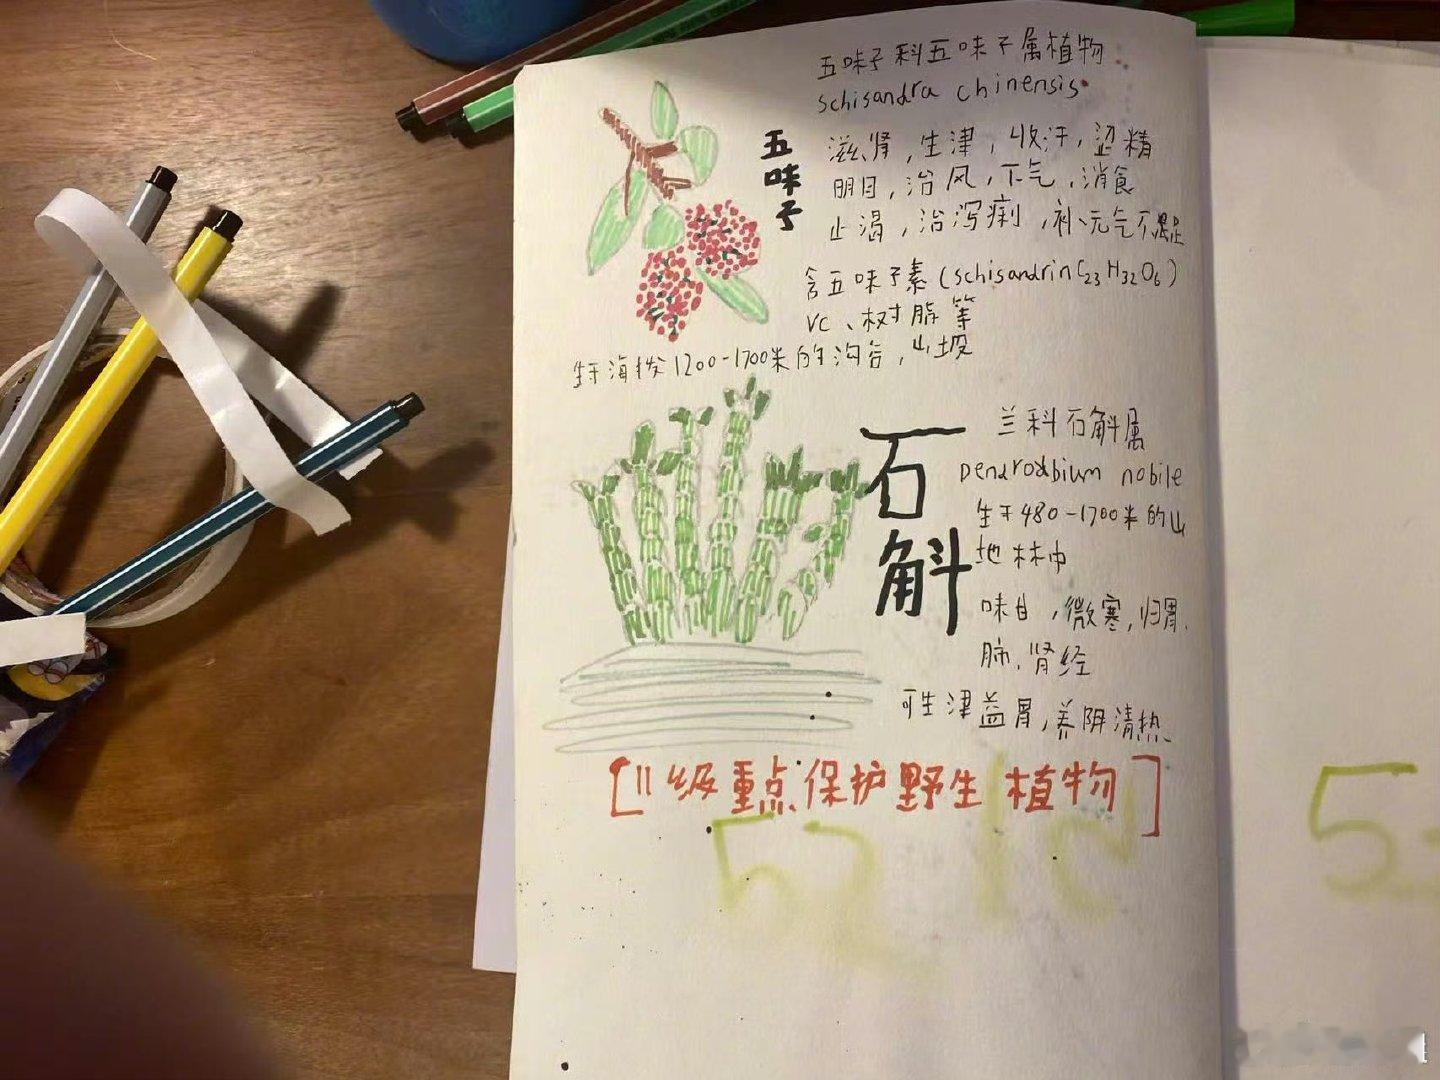 五味子科五味子属植物
schisandra chinensis
五味子
滋肾，生津，收汗，涩精
明目，治风，下气，消食
止渴，治泻痢，补元气不足
含五味子素(schisandrin C23H32O6)
VC、树脂等
生于海拔1200-1700米的沟谷，山坡
石斛
兰科石斛属
Dendrodbium nobile
生于480-1700米的山
地林中
味甘，微寒，归胃、
肺、肾经
可生津益胃，养阴清热
[II级重点保护野生植物]